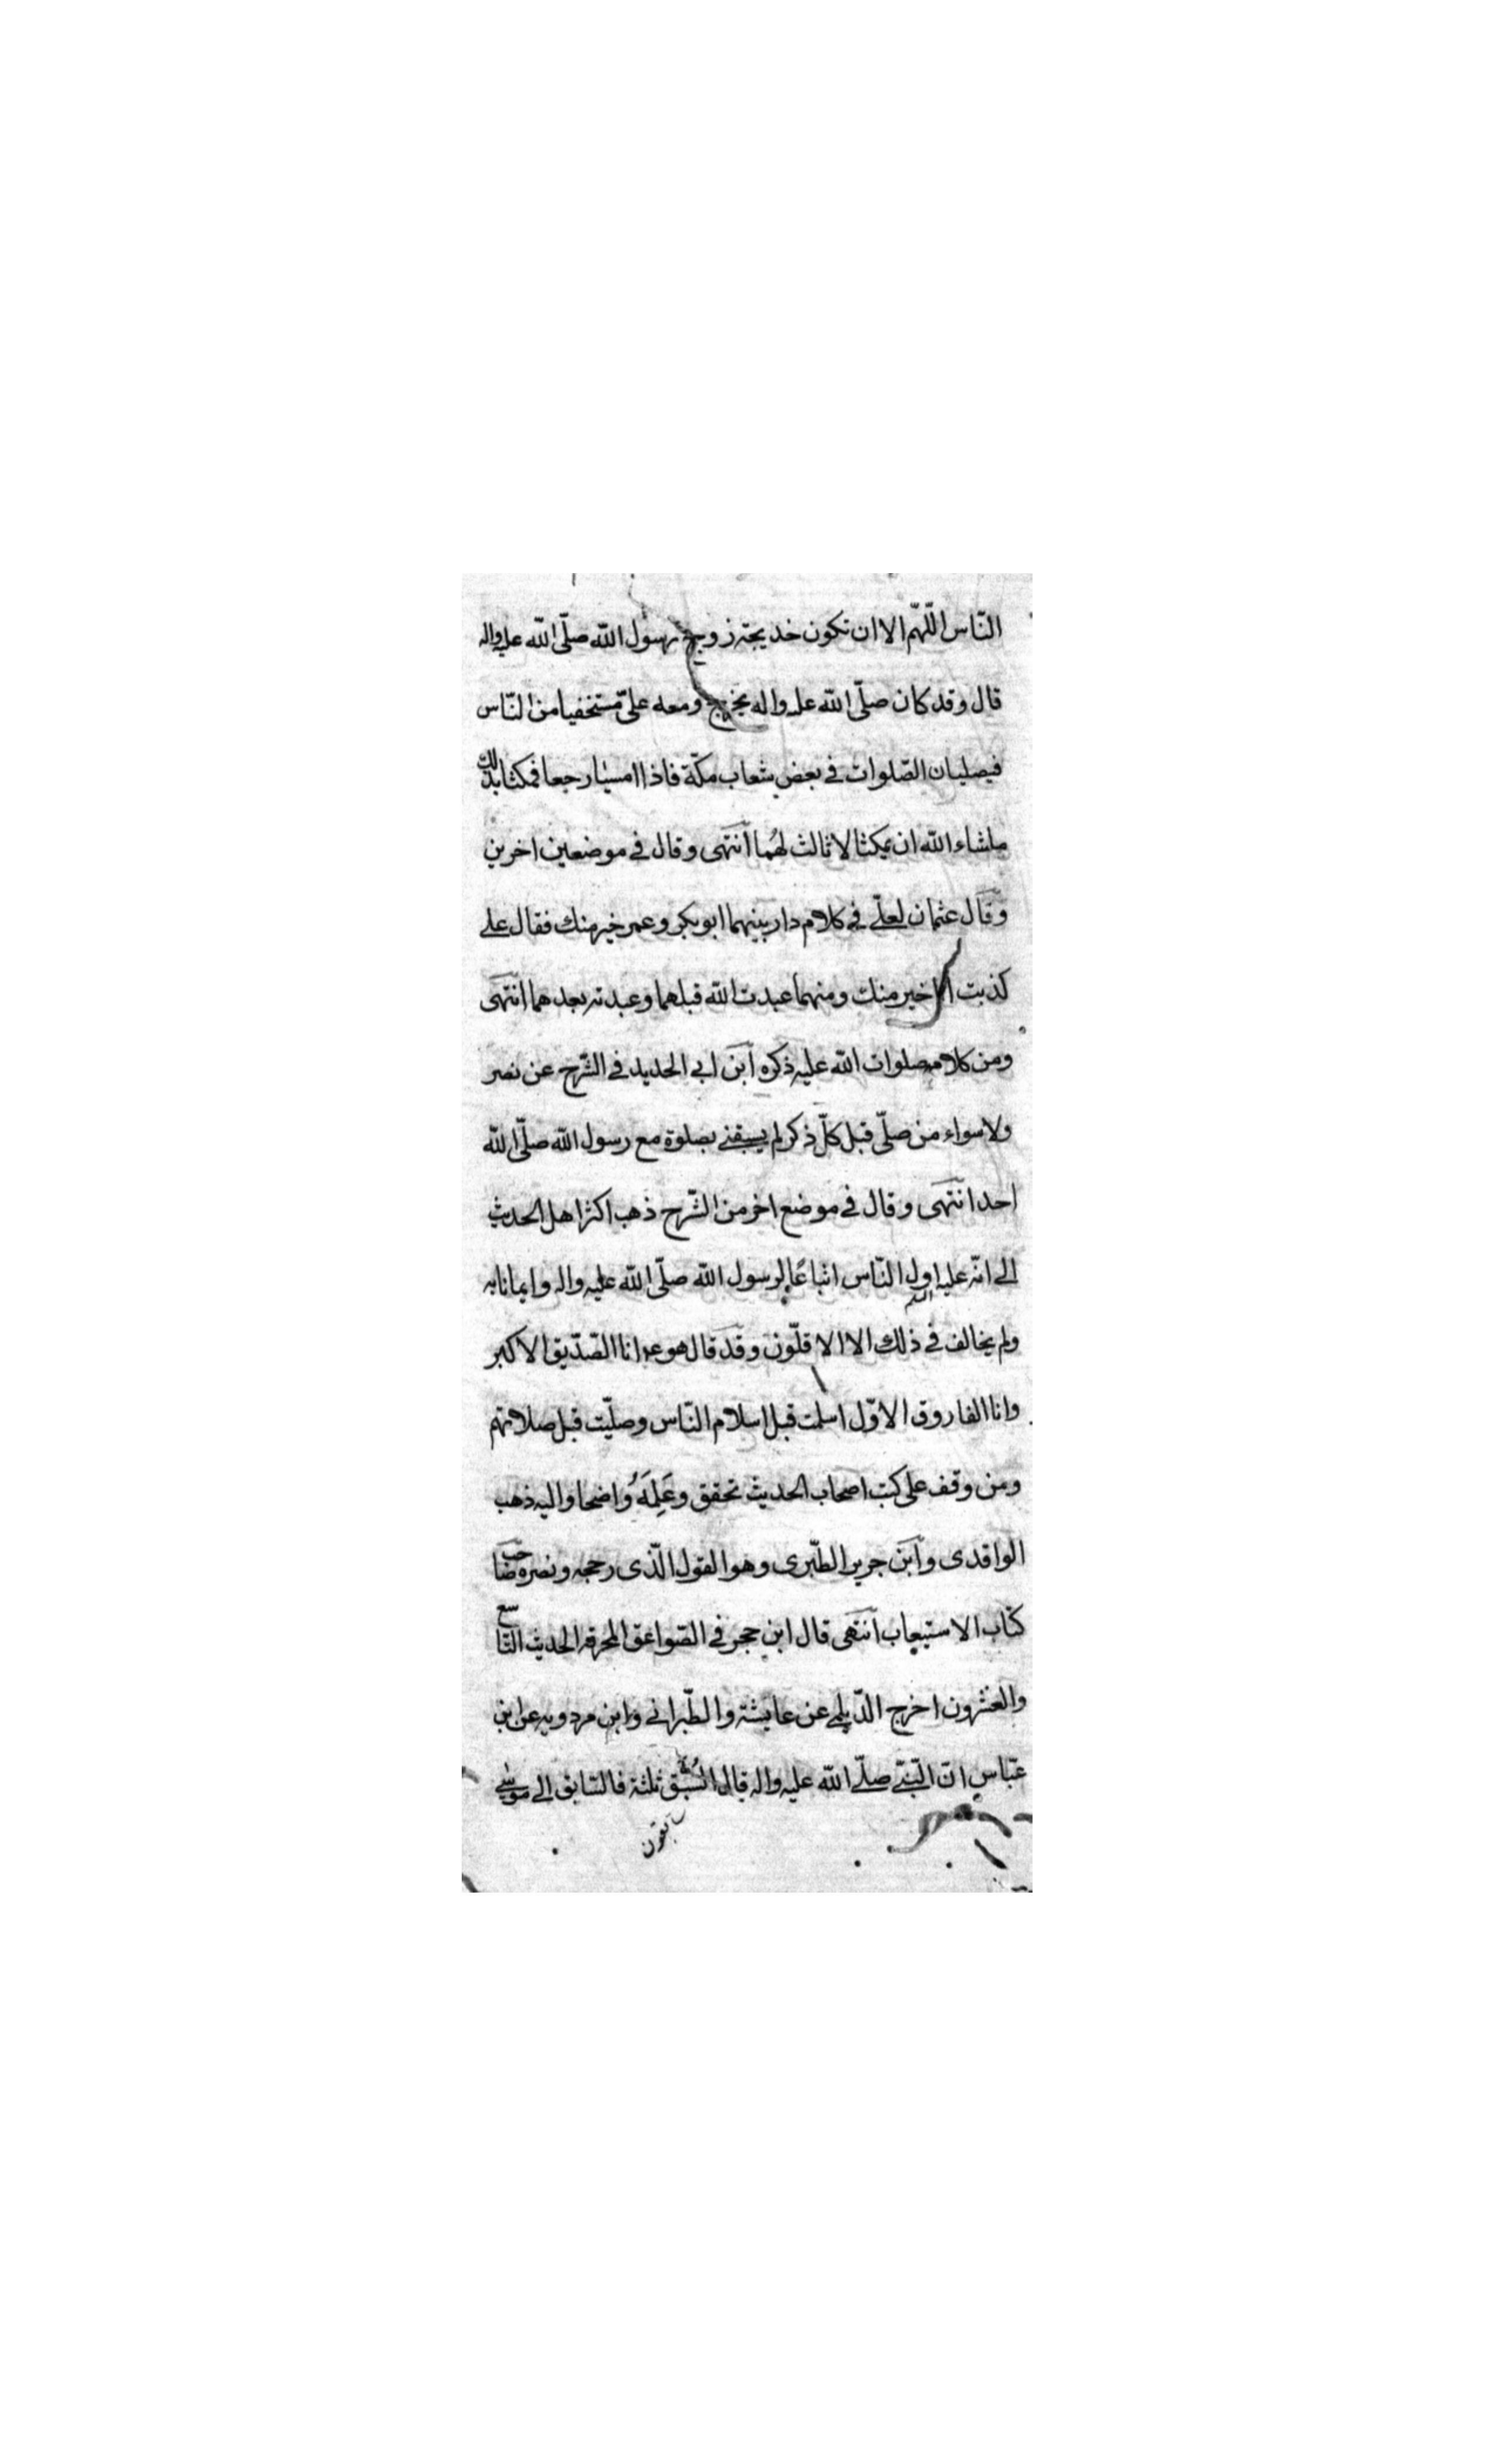 النّاس اللّهمّ الا ان تكون خديجة زوج رسول الله صلّى الله عليه واله
قال وقد كان صلّى الله عليه واله يخرج ومعه علىّ مستخفيا من النّاس
فيصليان الصّلوات في بعض شعاب مكّة فاذا امسيا رجعا فمكثا بذلك
ماشاء الله ان يمكثا لا ثالث لهُما انتهى وقال في موضعين اخرين
وقال عثمان لعلّي في كلام دار بينهما ابو بكر وعمر خير منك فقال علي
كذبت انا خير منك ومنهما عبدت الله قبلهما وعبدته بعدهما انتهى
ومن كلامه صلوات الله عليه ذكره ابن ابي الحديد في الشّرح عن نصر
ولا سواء من صلّى قبل كلّ ذكر لم يسبقني بصلوة مع رسول الله صلّى الله
احد انتهى وقال في موضع اخر من الشّرح ذهب اكثر اهل الحديث
الي انّه عليه السلم اول النّاس اتباعًا لرسول الله صلّى الله عليه واله وايمانا به
ولم يخالف في ذلك الا الاقلّون وقد قال هو ع انا الصّدّيق الاكبر
وانا الفاروق الاوّل اسلمت قبل اسلام النّاس وصلّيت قبل صلاتهم
ومن وقف على كتب اصحاب الحديث تحقق وعَلِمَهُ واضحا واليه ذهب
الواقدى وابن جرير الطّبرى وهو القول الّذى رجحه ونصره صاحب
كتاب الاستيعاب انتهى قال ابن حجر في الصّواعق المحرقه الحديث التّاسع
والعشرون اخرج الدّيلمي عن عايشة والطّبراني وابن مردويه عن ابن
عبّاس انّ النّبيّ صلّي الله عليه واله قال السُبّق ثلثة فالسّابق الي موسي
بقون